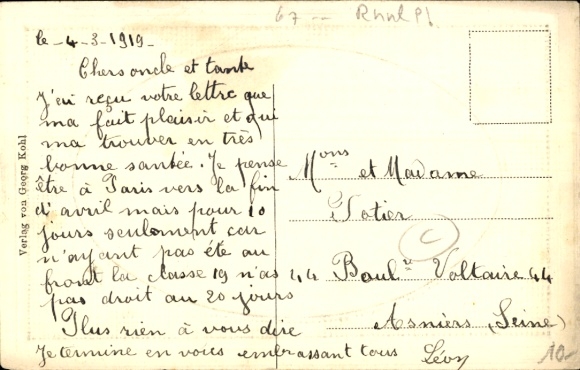 le - 4-3-1919-
Chers oncle et tante
J'ai reçu votre lettre que
ma fait plaisir et qui
ma trouver en très
bonne santée. Je pense
être à Paris vers la fin
d'avril mais pour 10
jours seulement car
n'ayant pas été au
front la classe 19 n'as
pas droit au 20 jours
Plus rien à vous dire
Je termine en vous embrassant tous Lévy
Mons et Madame
44 Boul. Voltaire 44
Asnièrs (Seine)
Verlag von Georg Kohl
67
10-